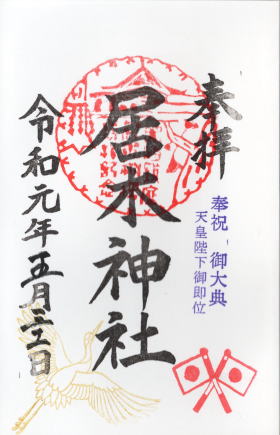 奉拝
奉祝 御大典
天皇陛下御即位
居木神社
令和元年五月三十一日